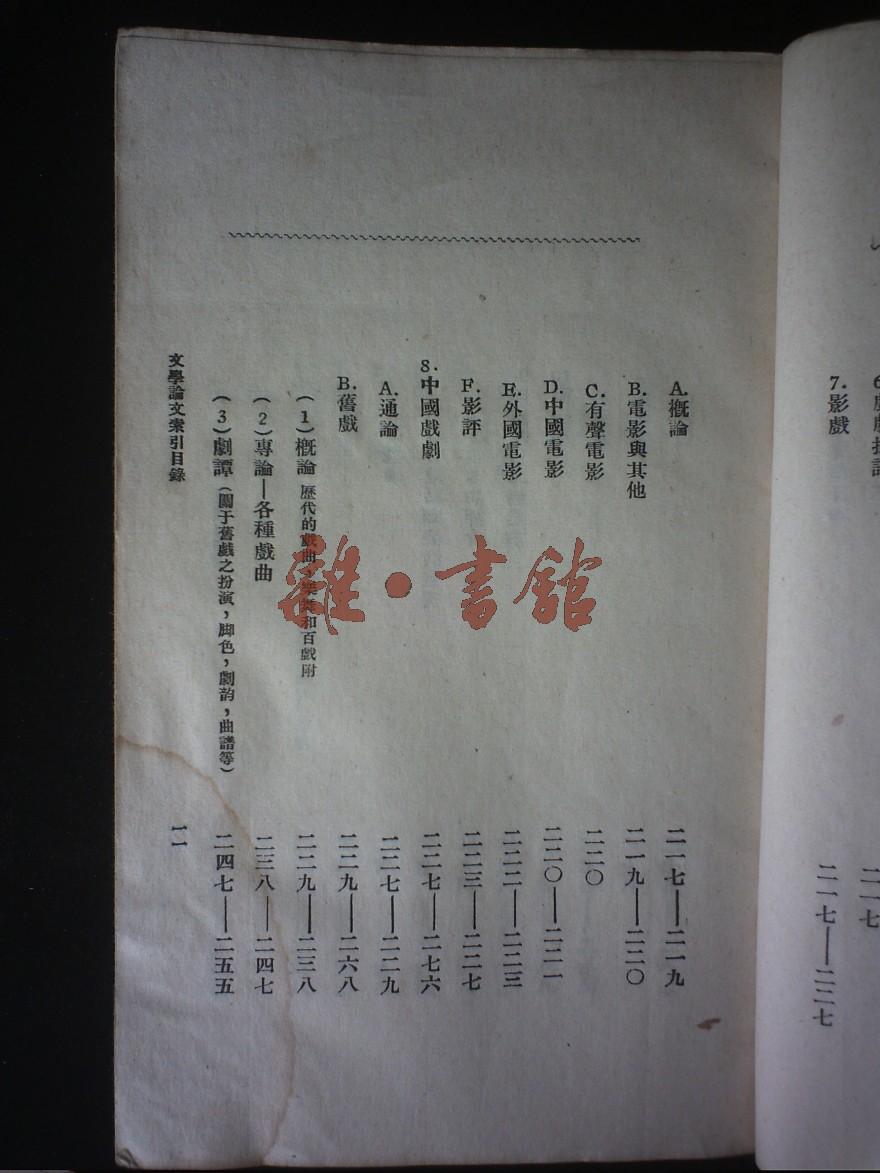 7. 影戲 二一七—二二七
二一七
A. 概論 二一七—二一九
B. 電影與其他 二一九—二二〇
C. 有聲電影 二二〇
D. 中國電影 二二〇—二二一
E. 外國電影 二二二—二二三
F. 影評 二二三—二二七
8. 中國戲劇 二二七—二七六
A. 通論 二二七—二二九
B. 舊戲 二二九—二六八
(1) 概論 歷代的戲曲,樂舞和百戲附 二二九—二三八
(2) 專論—各種戲曲 二三八—二四七
(3) 劇譚(關于舊戲之扮演,脚色,劇韵,曲譜等) 二四七—二五五
文學論文索引目錄 一一
雜·書館